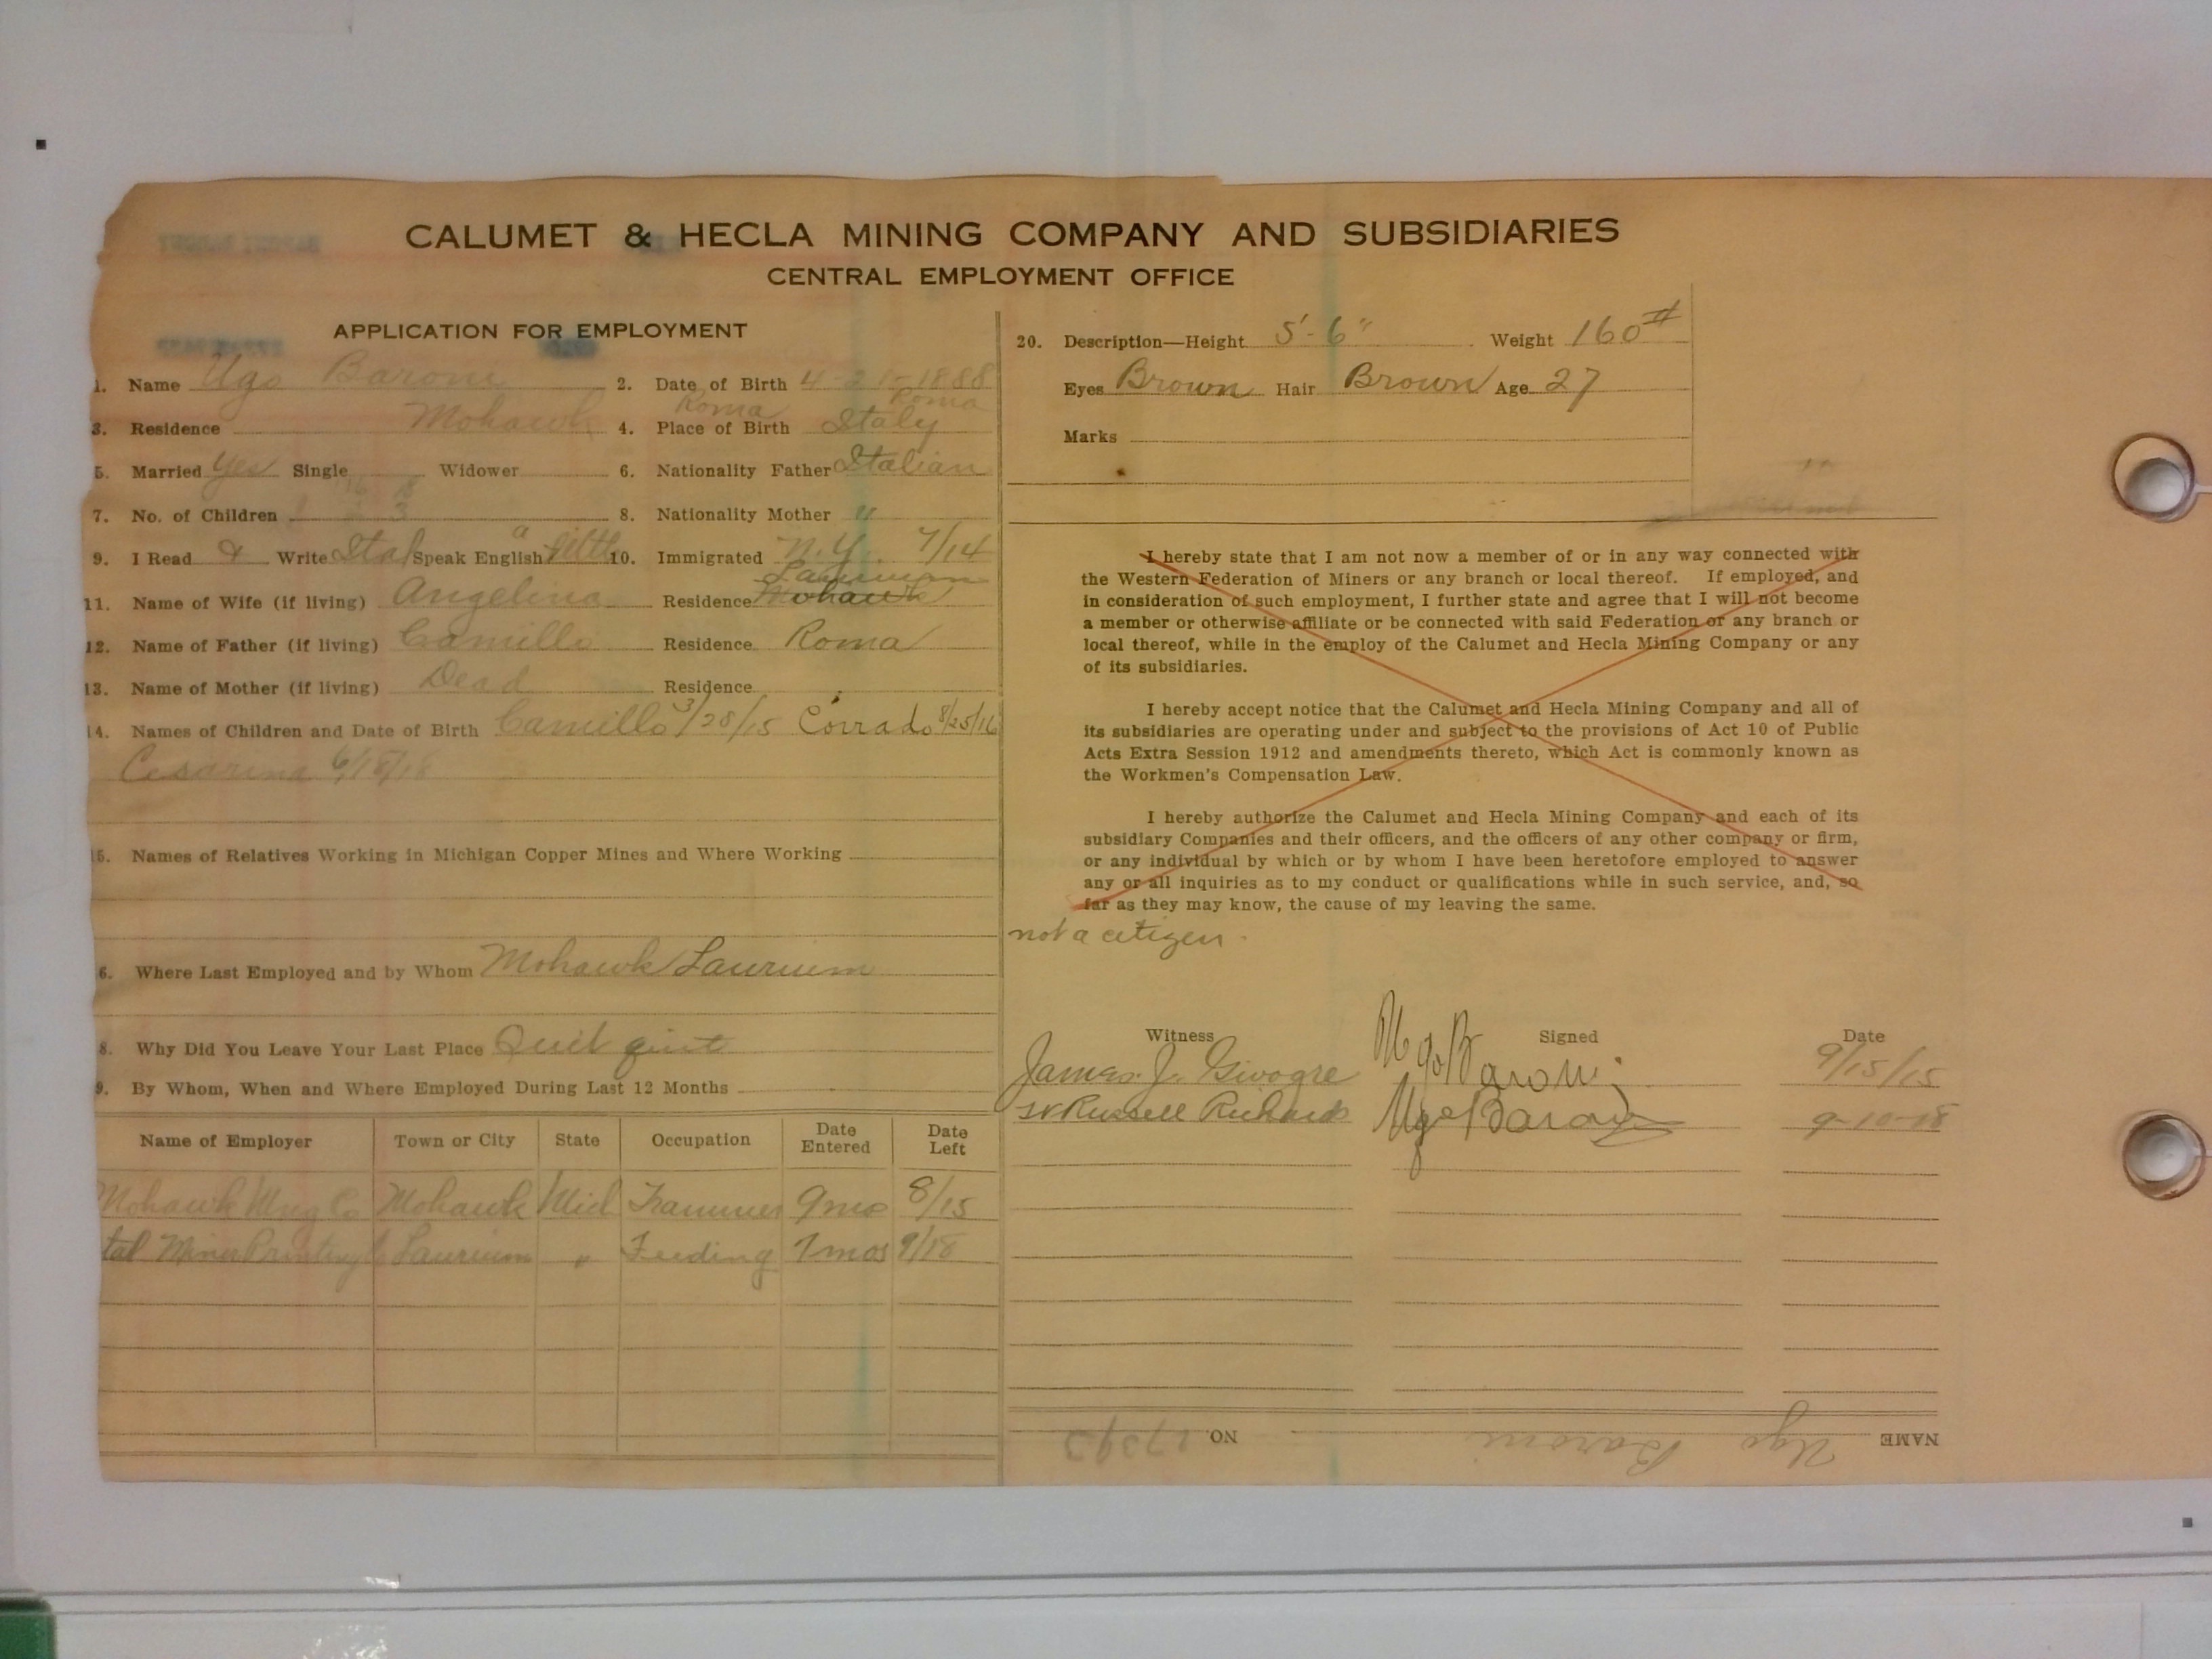 CALUMET & HECLA MINING COMPANY AND SUBSIDIARIES
CENTRAL EMPLOYMENT OFFICE
APPLICATION FOR EMPLOYMENT
1. Name Ugo Baroni 2. Date of Birth 4-21-1888
Roma Roma
3. Residence Mohawk 4. Place of Birth Italy
5. Married Yes Single Widower 6. Nationality Father Italian
7. No. of Children 3 8. Nationality Mother "
9. I Read & Write Ital Speak English a little 10. Immigrated N.Y. 7/14
Laurium
11. Name of Wife (if living) Angelina Residence Mohawk
12. Name of Father (if living) Camillo Residence Roma
13. Name of Mother (if living) Dead Residence
14. Names of Children and Date of Birth Camillo 3/28/15 Corrado 8/25/16
Cesarina 6/18/18
15. Names of Relatives Working in Michigan Copper Mines and Where Working
6. Where Last Employed and by Whom Mohawk Laurium
8. Why Did You Leave Your Last Place Quit quit
9. By Whom, When and Where Employed During Last 12 Months
Name of Employer Town or City State Occupation Date Entered Date Left
Mohawk Mng Co Mohawk Mich Trammer 9mo 8/15
Ital Miner Printing Laurium " Feeding 7mos 9/18
20. Description—Height 5'-6" Weight 160#
Eyes Brown Hair Brown Age 27
Marks
I hereby state that I am not now a member of or in any way connected with
the Western Federation of Miners or any branch or local thereof. If employed, and
in consideration of such employment, I further state and agree that I will not become
a member or otherwise affiliate or be connected with said Federation or any branch or
local thereof, while in the employ of the Calumet and Hecla Mining Company or any
of its subsidiaries.
I hereby accept notice that the Calumet and Hecla Mining Company and all of
its subsidiaries are operating under and subject to the provisions of Act 10 of Public
Acts Extra Session 1912 and amendments thereto, which Act is commonly known as
the Workmen's Compensation Law.
I hereby authorize the Calumet and Hecla Mining Company and each of its
subsidiary Companies and their officers, and the officers of any other company or firm,
or any individual by which or by whom I have been heretofore employed to answer
any or all inquiries as to my conduct or qualifications while in such service, and, so
far as they may know, the cause of my leaving the same.
not a citizen
Witness Signed Date
James J. Ugo Baroni 9/15/15
Russell Richards Ugo Baroni 9-10-18
NAME Ugo Baroni NO. 17393